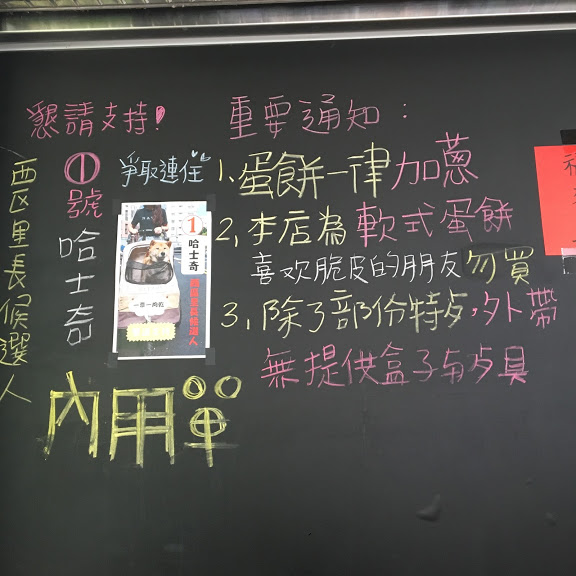 懇請支持!
西区里長候選人
①號
哈士奇
爭取連任
1
哈士奇
重要通知：
1、蛋餅一律加蔥
2、本店為軟式蛋餅
喜欢脆皮的朋友勿買
3、除了部份特殊，外帶
無提供盒子與具
內用單